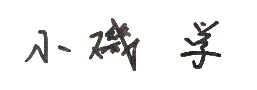 小磯 学